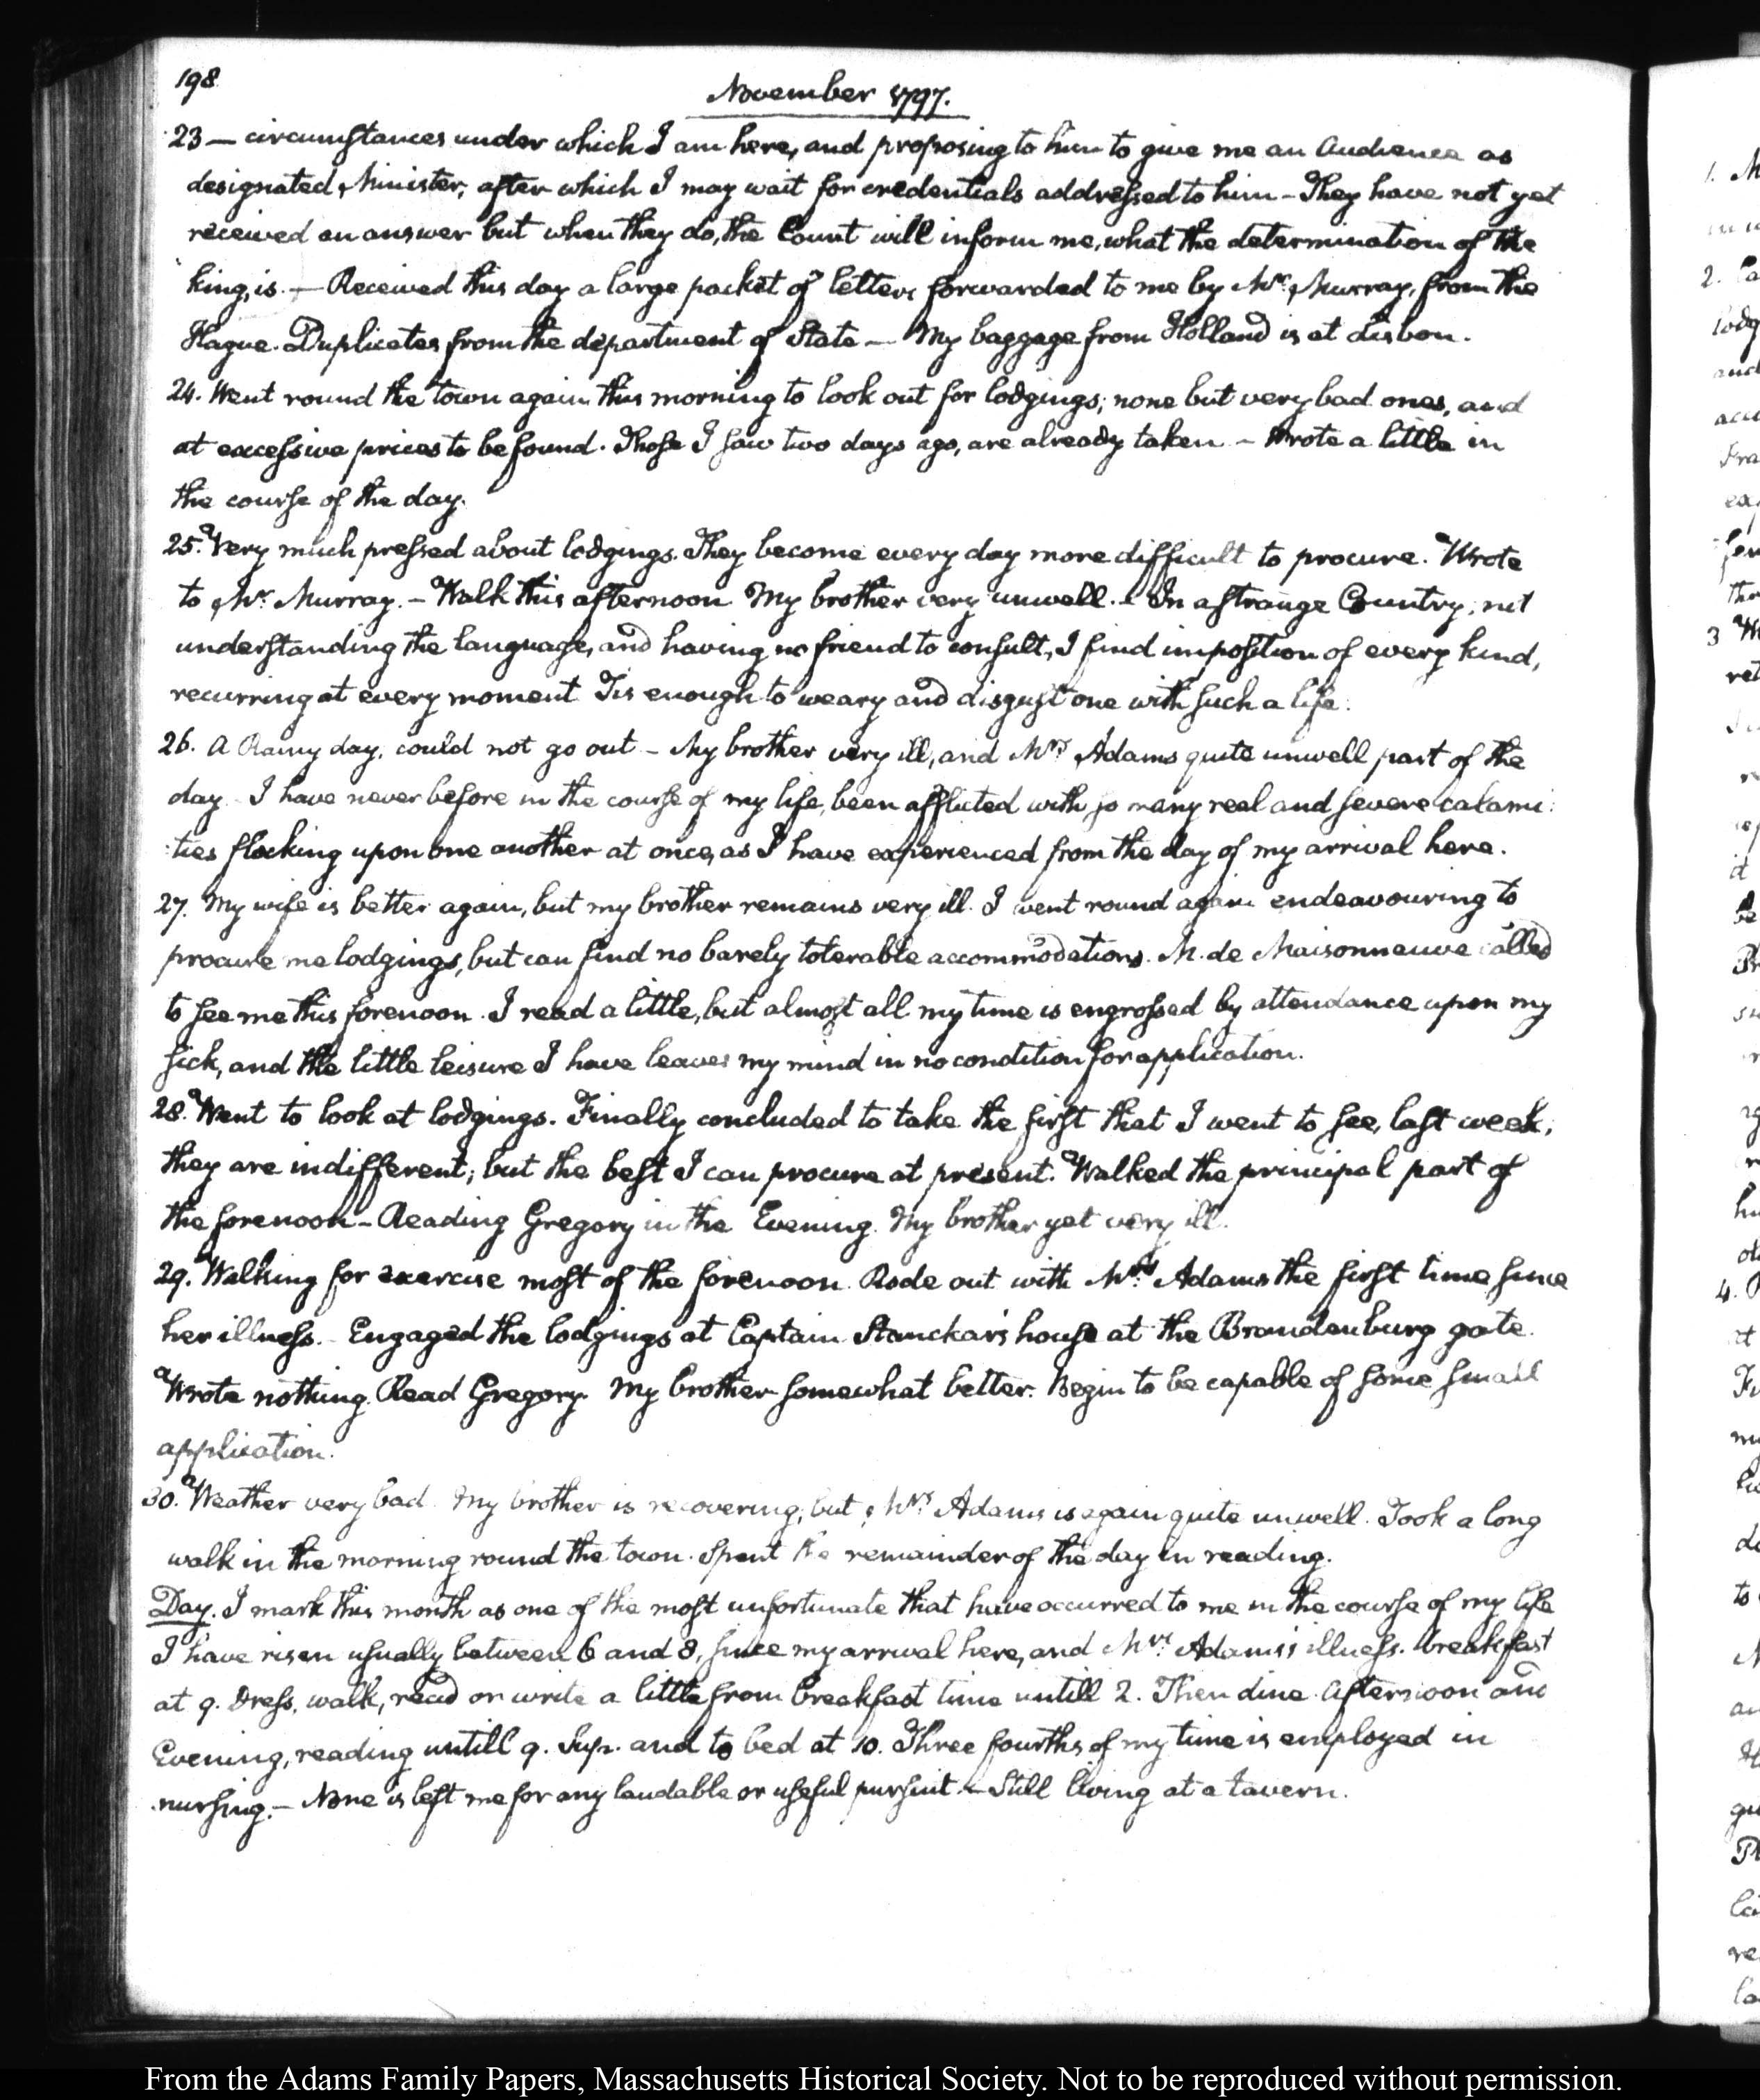 198
November 1797.
23 — circumstances under which I am here, and proposing to him to give me an Audience as
designated Minister, after which I may wait for credentials addressed to him – They have not yet
received an answer but when they do, the Count will inform me, what the determination of the
king, is. — Received this day a large packet of letters forwarded to me by Mr. Murray, from the
Hague. Duplicates from the department of State — My baggage from Holland is at Lisbon.
24. Went round the town again this morning to look out for lodgings; none but very bad ones, and
at excessive prices to be found. Those I saw two days ago, are already taken – Wrote a little in
the course of the day.
25. Very much pressed about lodgings. They become every day more difficult to procure. Wrote
to Mr. Murray. – Walk this afternoon My brother very unwell. – In a strange Country, not
understanding the language, and having no friend to consult, I find imposition of every kind,
recurring at every moment Tis enough to weary and disgust one with such a life.
26. A Rainy day, could not go out – My brother very ill, and Mrs. Adams quite unwell part of the
day I have never before in the course of my life, been afflicted with so many real and severe calami:
:ties flocking upon one another at once, as I have experienced from the day of my arrival here.
27. My wife is better again, but my brother remains very ill. I went round again endeavouring to
procure me lodgings, but can find no barely tolerable accommodations. M. de Maisonneuve called
to see me this forenoon. I read a little, but almost all my time is engrossed by attendance upon my
sick, and the little leisure I have leaves my mind in no condition for application.
28. Went to look at lodgings. Finally concluded to take the first that I went to see, last week,
they are indifferent; but the best I can procure at present. Walked the principal part of
the forenoon – Reading Gregory in the Evening. My brother yet very ill.
29. Walking for exercise most of the forenoon. Rode out with Mrs. Adams the first time since
her illness. Engaged the lodgings at Captain Stanckar's house at the Brandenburg gate.
Wrote nothing. Read Gregory. My brother somewhat better. Begin to be capable of some small
application.
30. Weather very bad. My brother is recovering; but Mrs. Adams is again quite unwell. Took a long
walk in the morning round the town. Spent the remainder of the day in reading.
Day. I mark this month as one of the most unfortunate that have occurred to me in the course of my life
I have risen usually between 6 and 8, since my arrival here, and Mrs. Adams's illness. breakfast
at 9. Dress, walk, read or write a little from breakfast time untill 2. Then dine. Afternoon and
Evening, reading untill 9. Sup. and to bed at 10. Three fourths of my time is employed in
nursing. – None is left me for any laudable or useful pursuit. – Still living at a tavern.
From the Adams Family Papers, Massachusetts Historical Society. Not to be reproduced without permission.